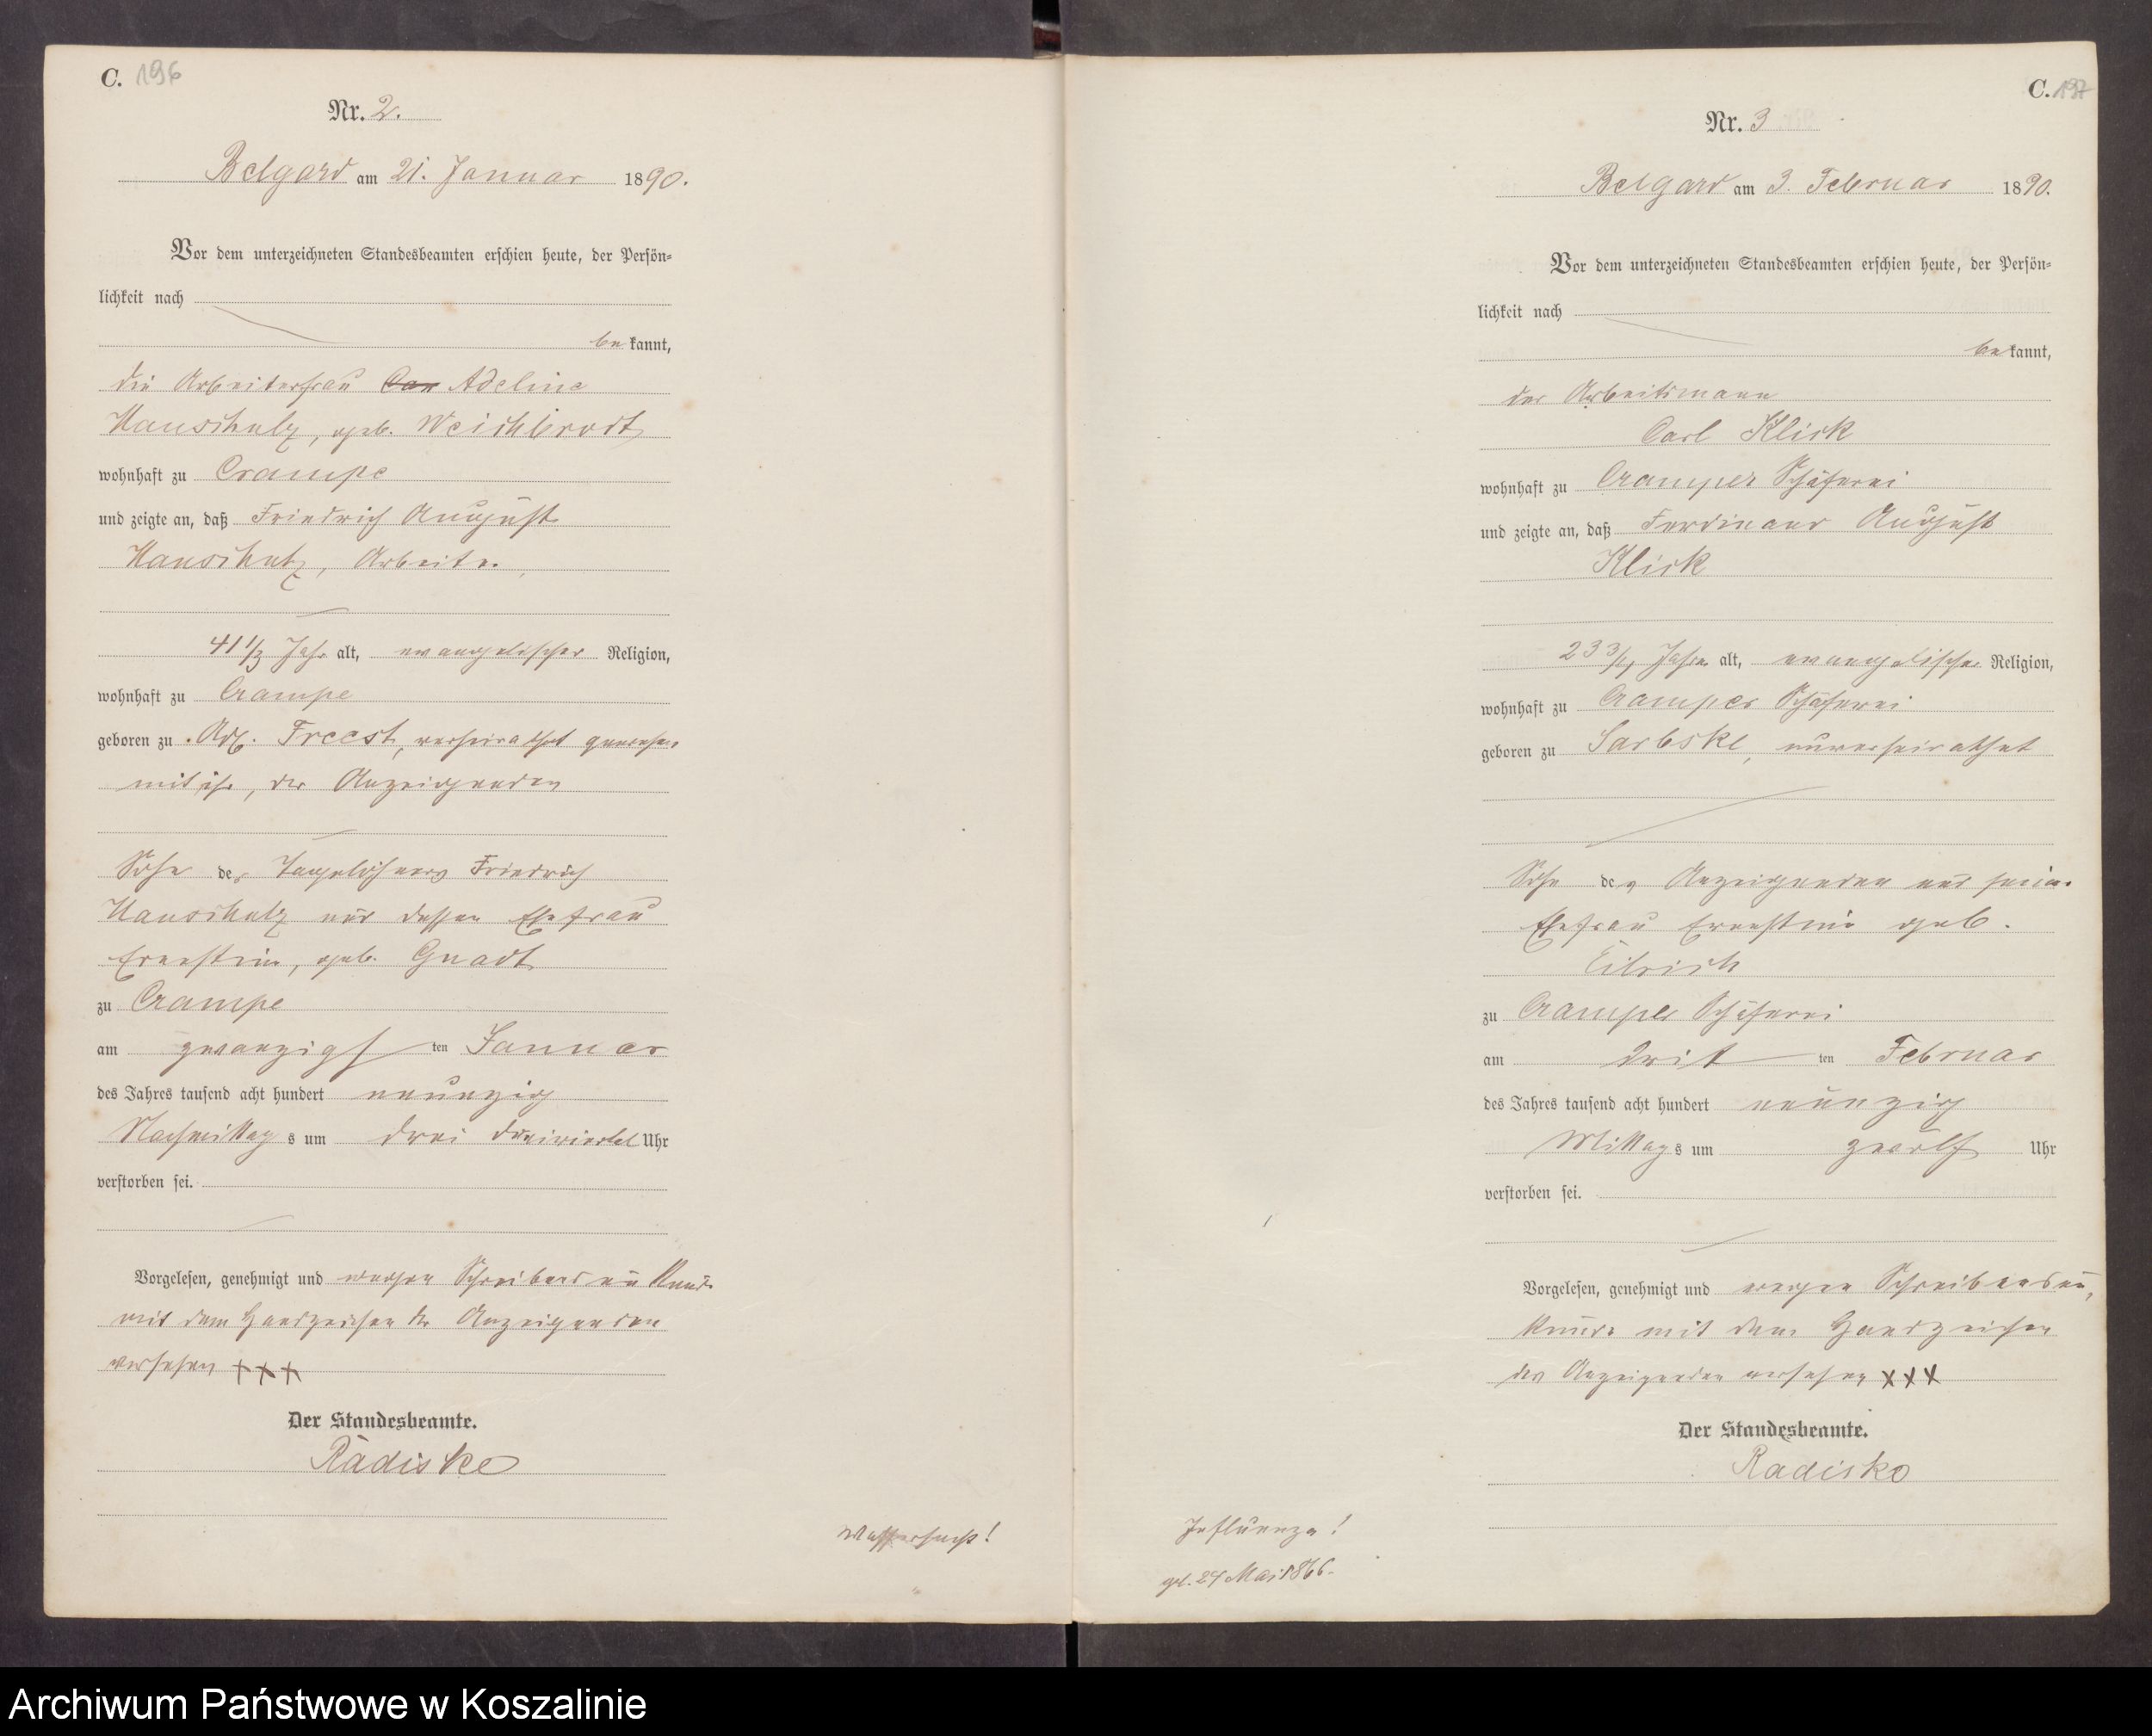 C. 196
Nr. 2.
Belgard am 21. Januar 1890.
Vor dem unterzeichneten Standesbeamten erschien heute, der Persön-
lichkeit nach
be kannt,
die Arbeiterfrau Adeline
Hauschulz, geb. Weichbrodt
wohnhaft zu Crampe
und zeigte an, daß Friedrich August
Hauschulz, Arbeiter
41 1/3 Jahr alt, evangelischer Religion,
wohnhaft zu Crampe
geboren zu Adl. Freest, verheirathet gewesen
mit ihr, der Anzeigenden
Sohn des Tagelöhners Friedrich
Hauschulz und dessen Ehefrau
Ernestine, geb. Gnadt
zu Crampe
am zwanzigs ten Januar
des Jahres tausend acht hundert neunzig
Nachmittag s um drei dreiviertel Uhr
verstorben sei.
Vorgelesen, genehmigt und wegen Schreibensunkunde
mit dem Handzeichen der Anzeigenden
versehen +++
Der Standesbeamte.
Radiske
Wassersucht!
C. 197
Nr. 3
Belgard am 3. Februar 1890.
Vor dem unterzeichneten Standesbeamten erschien heute, der Persön-
lichkeit nach
be kannt,
der Arbeitsmann
Carl Klick
wohnhaft zu Cramper Schäferei
und zeigte an, daß Ferdinand August
Klick
23 3/4 Jahre alt, evangelischer Religion,
wohnhaft zu Cramper Schäferei
geboren zu Sarbske, unverheirathet
Sohn des Anzeigenden und seiner
Ehefrau Ernestine geb.
zu Cramper Schäferei
am drit ten Februar
des Jahres tausend acht hundert neunzig
Mittag s um zwölf Uhr
verstorben sei.
Vorgelesen, genehmigt und wegen Schreibensun-
kunde mit dem Handzeichen
des Anzeigenden versehen XXX
Der Standesbeamte.
Radiske
Influenza!
geb. 24 Mai 1866.
Archiwum Państwowe w Koszalinie